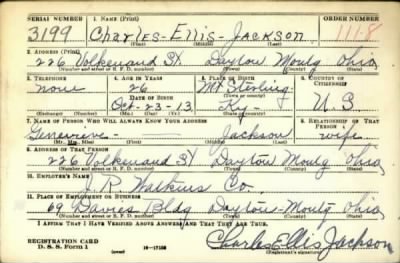 SERIAL NUMBER 1. NAME (Print) ORDER NUMBER
3199 Charles-Ellis-Jackson 1118
(First) (Middle) (Last)
2. ADDRESS (Print)
226 Volkenand St. Dayton Montg Ohio
(Number and street or R. F. D. number) (Town) (County) (State)
3. TELEPHONE 4. AGE IN YEARS 5. PLACE OF BIRTH 6. COUNTRY OF CITIZENSHIP
none 26 Mt Sterling
DATE OF BIRTH (Town or county)
Oct-23-13 Ky- U.S.
(Exchange) (Number) (Mo.) (Day) (Yr.) (State or country)
7. NAME OF PERSON WHO WILL ALWAYS KNOW YOUR ADDRESS 8. RELATIONSHIP OF THAT PERSON
Genevieve- Jackson wife
(Mr., Mrs., Miss) (First) (Middle) (Last)
9. ADDRESS OF THAT PERSON
226 Volkenand St Dayton Montg Ohio
(Number and street or R. F. D. number) (Town) (County) (State)
10. EMPLOYER'S NAME
J. R. Watkins Co.
11. PLACE OF EMPLOYMENT OR BUSINESS
69 Davies Bldg Dayton-Montg Ohio
(Number and street or R. F. D. number) (Town) (County) (State)
I AFFIRM THAT I HAVE VERIFIED ABOVE ANSWERS AND THAT THEY ARE TRUE.
REGISTRATION CARD
D. S. S. Form 1 (over) 16-17105 Charles Ellis Jackson
(Registrant's signature)